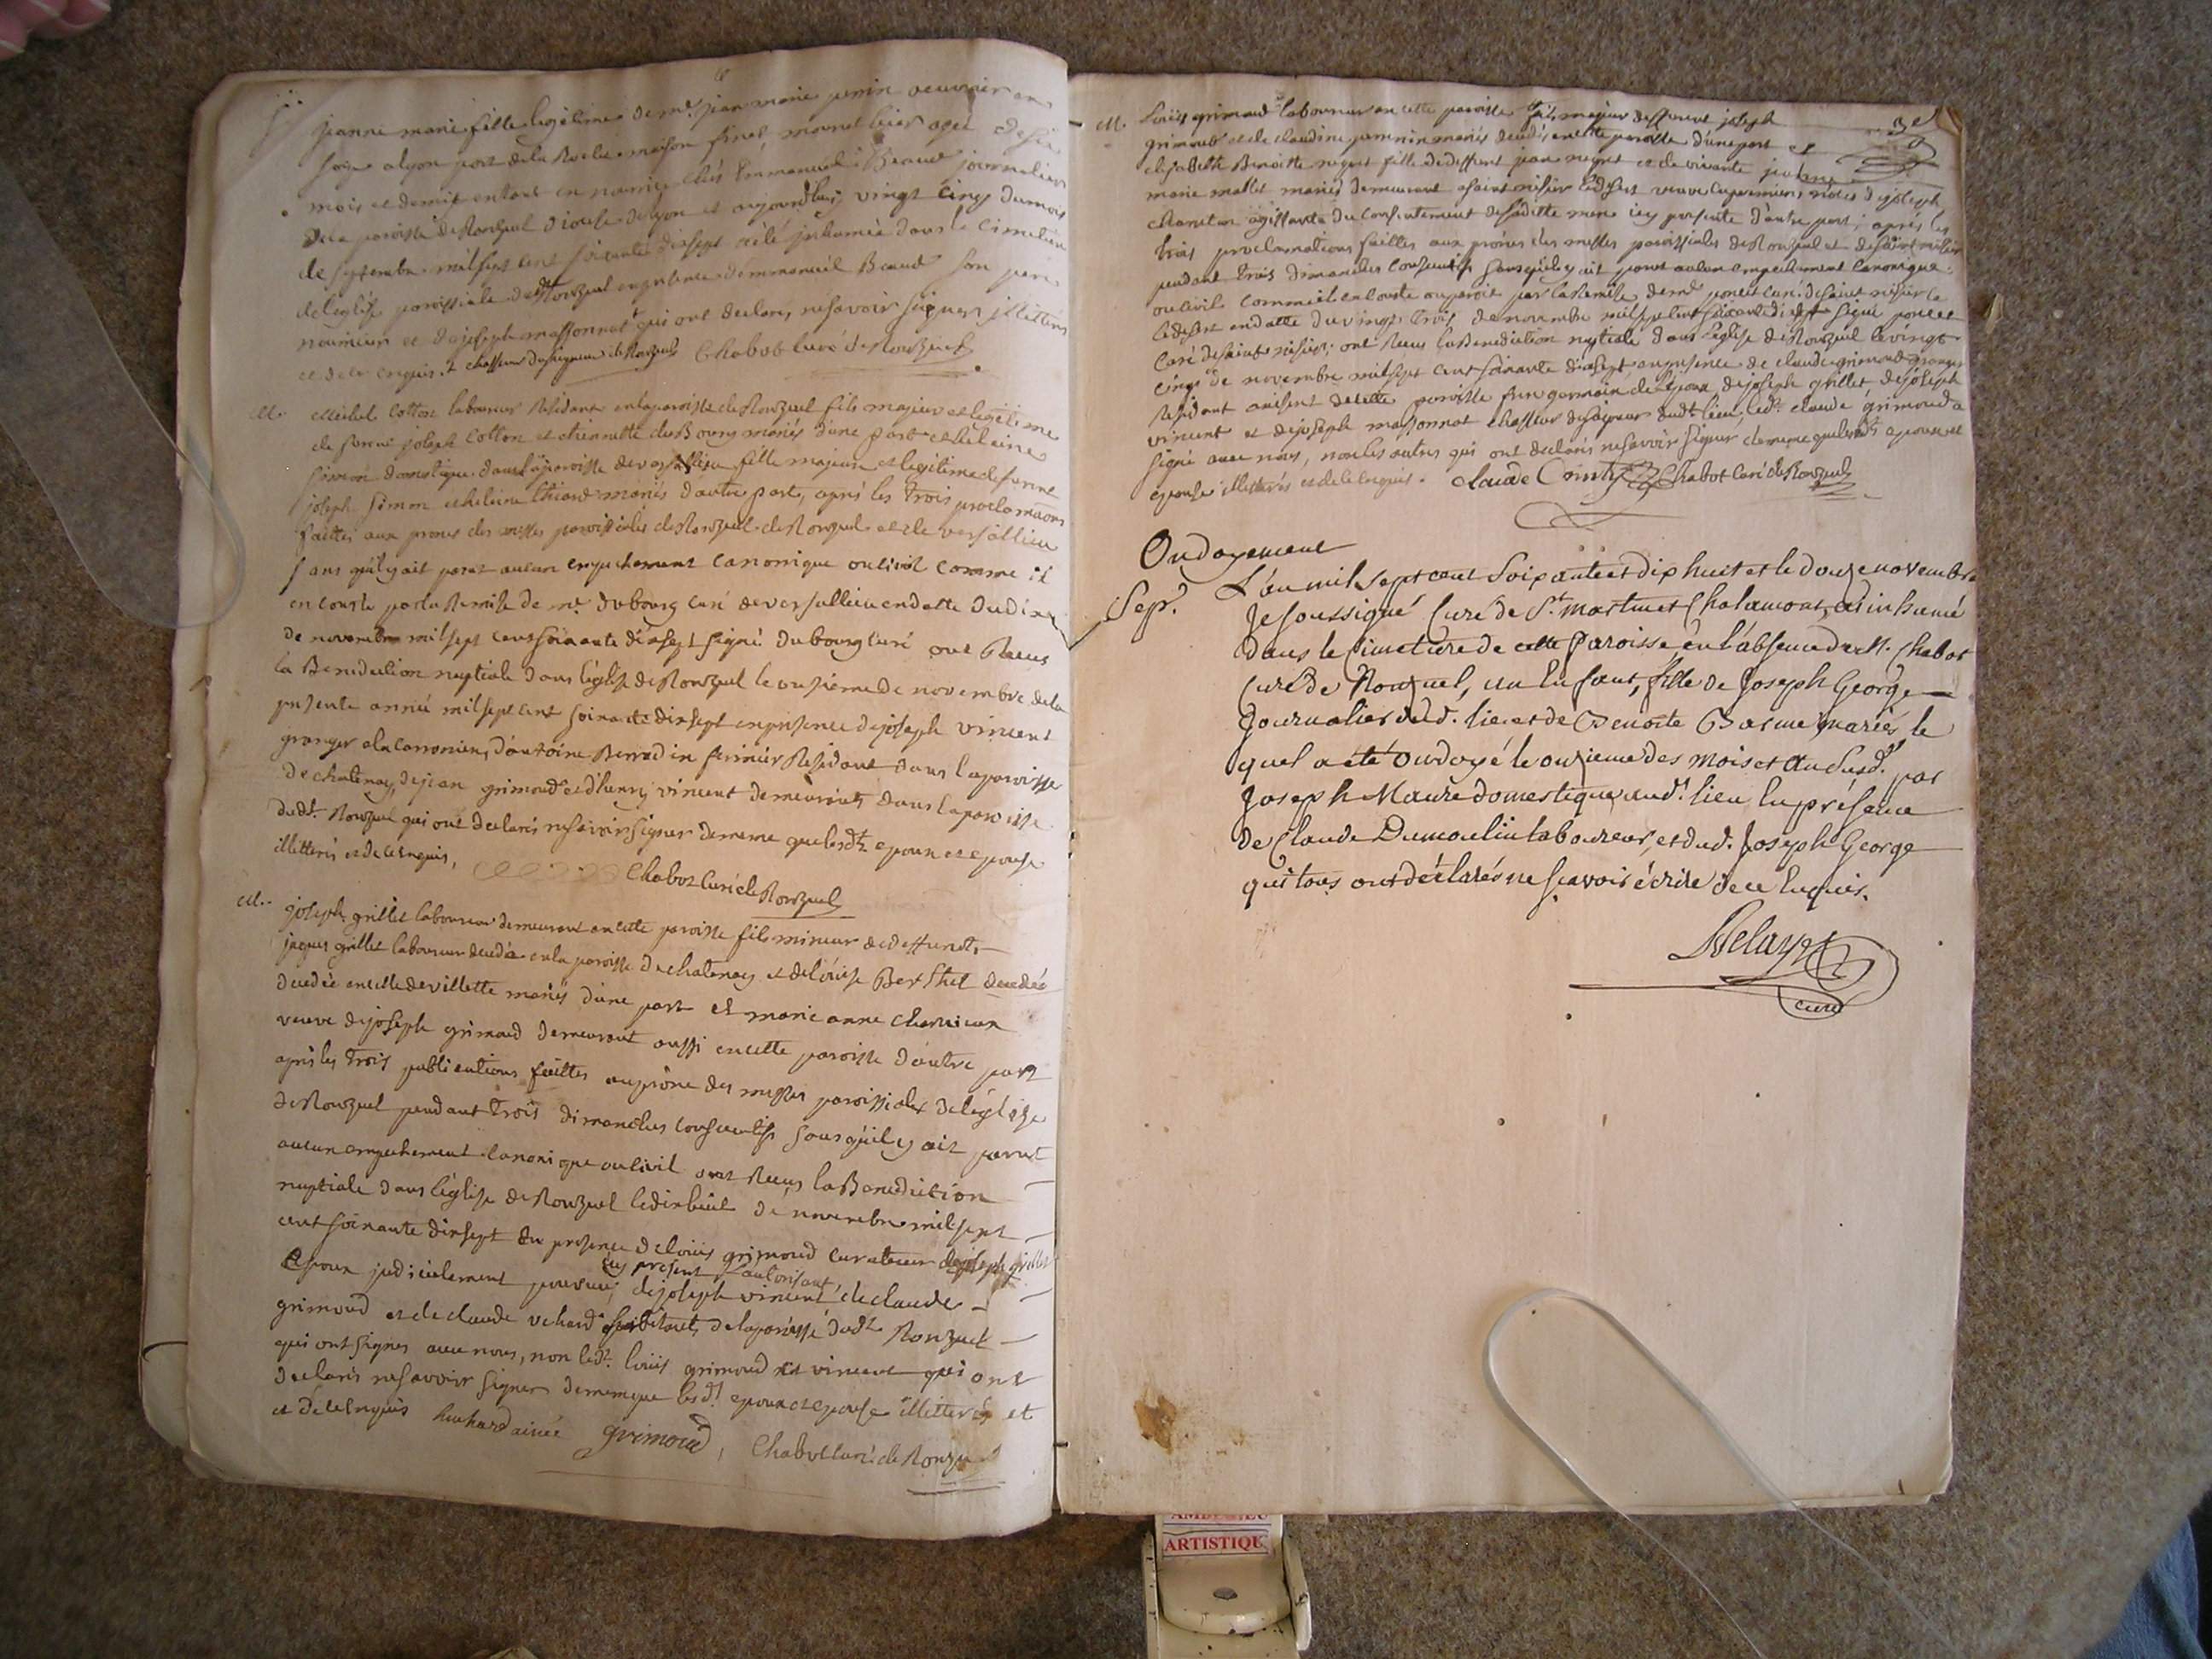 jeanne marie fille legitime de mr. jean marie perrin ouvrier en
soye a lyon port de la maison finet mournet bier agée de six
mois et demis enfant en nourrice chés Emmanuel Beaud journalier
de la paroisse de Ronzuel diocese de lyon et aujourdhuy vingt cinq du mois
de septembre mil sept cent soixante dixsept a été inhumée dans le cimetiere
de l'eglise paroissiale de Ronzuel en presence d'emmanuel Beaud son pere
nouricier et de joseph massonnat qui ont declarés ne savoir signer illitterés
et de ce enquis. chasseur du seigneur de Ronzuel Chabot curé de Ronzuel
M. Michel Cotton laboureur Residant en la paroisse de Ronzuel fils majeur et legitime
de feu joseph Cotton et etiennette du Bourg mariés d'une part et helaine
simon domestique dans la paroisse de versallieu fille majeure et legitime de feu
joseph simon et helaine thiard mariés d'autre part, aprés les trois proclamaons
faittes aux prones des messes paroissiales de Ronzuel de Ronzuel et de versallieu
sans qu'il y ait parut aucun empechement canonique ou civil comme il
en conste par la Remise de mr. dubourg curé de versallieu en datte du dix
de novembre mil sept cent soixante dixsept signé dubourg curé ont Recus
la Benediction nuptiale dans l'église de Ronzuel le onzieme de novembre de la
presente année mil sept cent soixante dixsept en presence de joseph vincent
granger a la carroniere, d'antoine Bernadin fermier Residant dans la paroisse
de chatenay, de jean grimoud et d'henry vincent demeurants dans la paroisse
dudt. Ronzuel qui ont declarés ne savoir signer de meme que lesdts. epoux et epouse
illitterés et de ce enquis, Chabot curé de Ronzuel
M. joseph grillet laboureur demeurant en cette paroisse fils mineur de deffunct
jaques grillet laboureur decedé en la paroisse de chatenay et de loüise Berthet decedée
decedée en celle de villette mariés d'une part et marie anne
veuve de joseph grimaud demeurant aussi en cette paroisse d'autre part
aprés les trois publications faittes au prône des messes paroissiales de l'église
de Ronzuel pendant trois dimanches consecutifs sans qu'il y ait parut
aucun empechement canonique ou civil ont Recus la Benediction
nuptiale dans l'église de Ronzuel le dixhuit de novembre mil sept
cent soixante dixsept en presence de loüis grimoud curateur de joseph grillet
icy present l'autorisant,
Epoux judiciellement pourvue, de joseph vincent de claude
grimoud et de claude habitants de la paroisse dudt Ronzuel
qui ont signés avec nous, non ledt. loüis grimoud et vincent qui ont
declarés ne savoir signer de meme que lesdt. epoux et epouse illitterés et
et de ce enquis grimoud, Chabot curé de Ronzuel
M. Loüis grimaud laboureur en cette paroisse fils majeur de deffunct joseph
3e
grimoud et de claudine perrin mariés decedés en cette paroisse d'une part et
elisabeth Benoitte negret fille de deffunt jean negret et de vivante
marie mallet mariés demeurant a saint nisier le desert veuve en premieres nôces de joseph
charretton agissante du consentement de sa ditte mere icy presente d'autre part; aprés les
trois proclamations faittes aux prônes des messes paroissiales de Ronzuel et de saint nisier
pendant trois dimanches consecutifs sans qu'il y ait parut aucun empechement canonique
ou civil comme il en conste ou paroit par la Remise de mr. poncet curé de saint nisier le
le desert en datte du vingt trois de novembre mil sept cent soixante dixsept signé poncet
curé de saint nisier; ont Recus la Benediction nuptiale dans l'église de Ronzuel le vingt
cinq de novembre mil sept cent soixante dixsept en presence de claude grimoud granger
Residant de cette paroisse frere germain de l'epoux de joseph grillet de joseph
vincent et de joseph massonnat chasseur du seigneur dudt. lieu, ledt. claude grimoud a
signé avec nous, non les autres qui ont declarés ne savoir signer de meme que lesdts epoux et
epouse illitterés et de ce enquis. Claude Chabot curé de Ronzuel
Ondoyement
L'an mil sept cent soixante et dix huit et le douze novembre
Sep.re
Je soussigné Curé de St. martin et Chalamont, ai inhumé
dans le Cimetiere de cette Paroisse, en l'absence de M. Chabot
Curé de Ronzuel, un Enfant, fille de Joseph George
Journalier dud. lieu et de Benoite Barme mariés, le
quel a été ondoyé le onzieme des mois et an susd. par
Joseph Maure domestique aud. lieu, En présence
de Claude Dumoulin laboureur, et dud. Joseph George
qui tous ont déclarés ne sçavoir écrire de ce Enquis.
Delaye
curé
ARTISTIQU